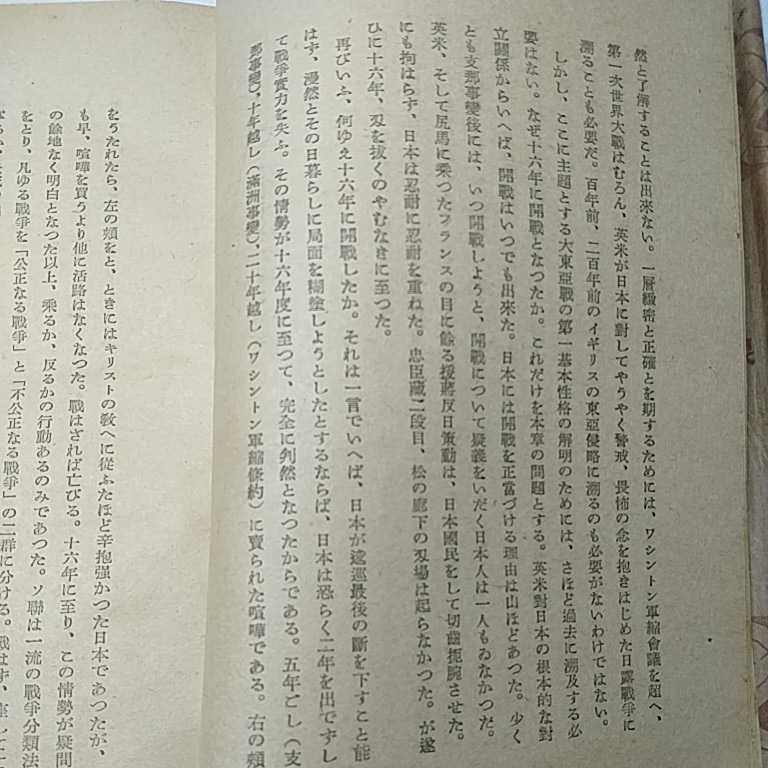 然と了解することは出來ない。一層緻密と正確とを期するためには、ワシントン軍縮會議を超へ、
第一次世界大戰はむろん、英米が日本に對してやうやく警戒、畏怖の念を抱きはじめた日露戰爭に
溯ることも必要だ。百年前、二百年前のイギリスの東亞侵略に溯るのも必要がないわけではない。
しかし、ここに主題とする大東亞戰の第一基本性格の解明のためには、さほど過去に溯及する必
要はない。なぜ十六年に開戰となつたか。これだけを本章の問題とする。英米對日本の根本的な對
立關係からいへば、開戰はいつでも出來た。日本には開戰を正當づける理由は山ほどあつた。少く
とも支那事變後には、いつ開戰しようと、開戰について疑義をいだく日本人は一人もゐなかつた。
英米、そして尻馬に乘つたフランスの目に餘る援蔣反日策動は、日本國民をして切齒扼腕させた。
にも拘はらず、日本は忍耐に忍耐を重ねた。忠臣藏二段目、松の廊下の刄場は起らなかつた。が遂
ひに十六年、刄を拔くのやむなきに至つた。
再びいふ、何ゆえ十六年に開戰したか。それは一言でいへば、日本が逡巡最後の斷を下すこと能
はず、漫然とその日暮らしに局面を糊塗しようとしたとするならば、日本は恐らく二年を出でずし
て戰爭實力を失ふ。その情勢が十六年度に至つて、完全に判然となつたからである。五年ごし（支
那事變）、十年越し（滿洲事變）、二十年越し（ワシントン軍縮條約）に賣られた喧嘩である。右の頰
をうたれたら、左の頰をと、ときにはキリストの敎へに從ふたほど辛抱强かつた日本であつたが、
も早、喧嘩を買うより他に活路はなくなつた。戰はざれば亡びる。十六年に至り、この情勢が疑問
の餘地なく明白となつた以上、乘るか、反るかの行動あるのみであつた。ソ聯は一流の戰爭分類法
をとり、凡ゆる戰爭を「公正なる戰爭」と「不公正なる戰爭」の二群に分ける。戰はず、座して